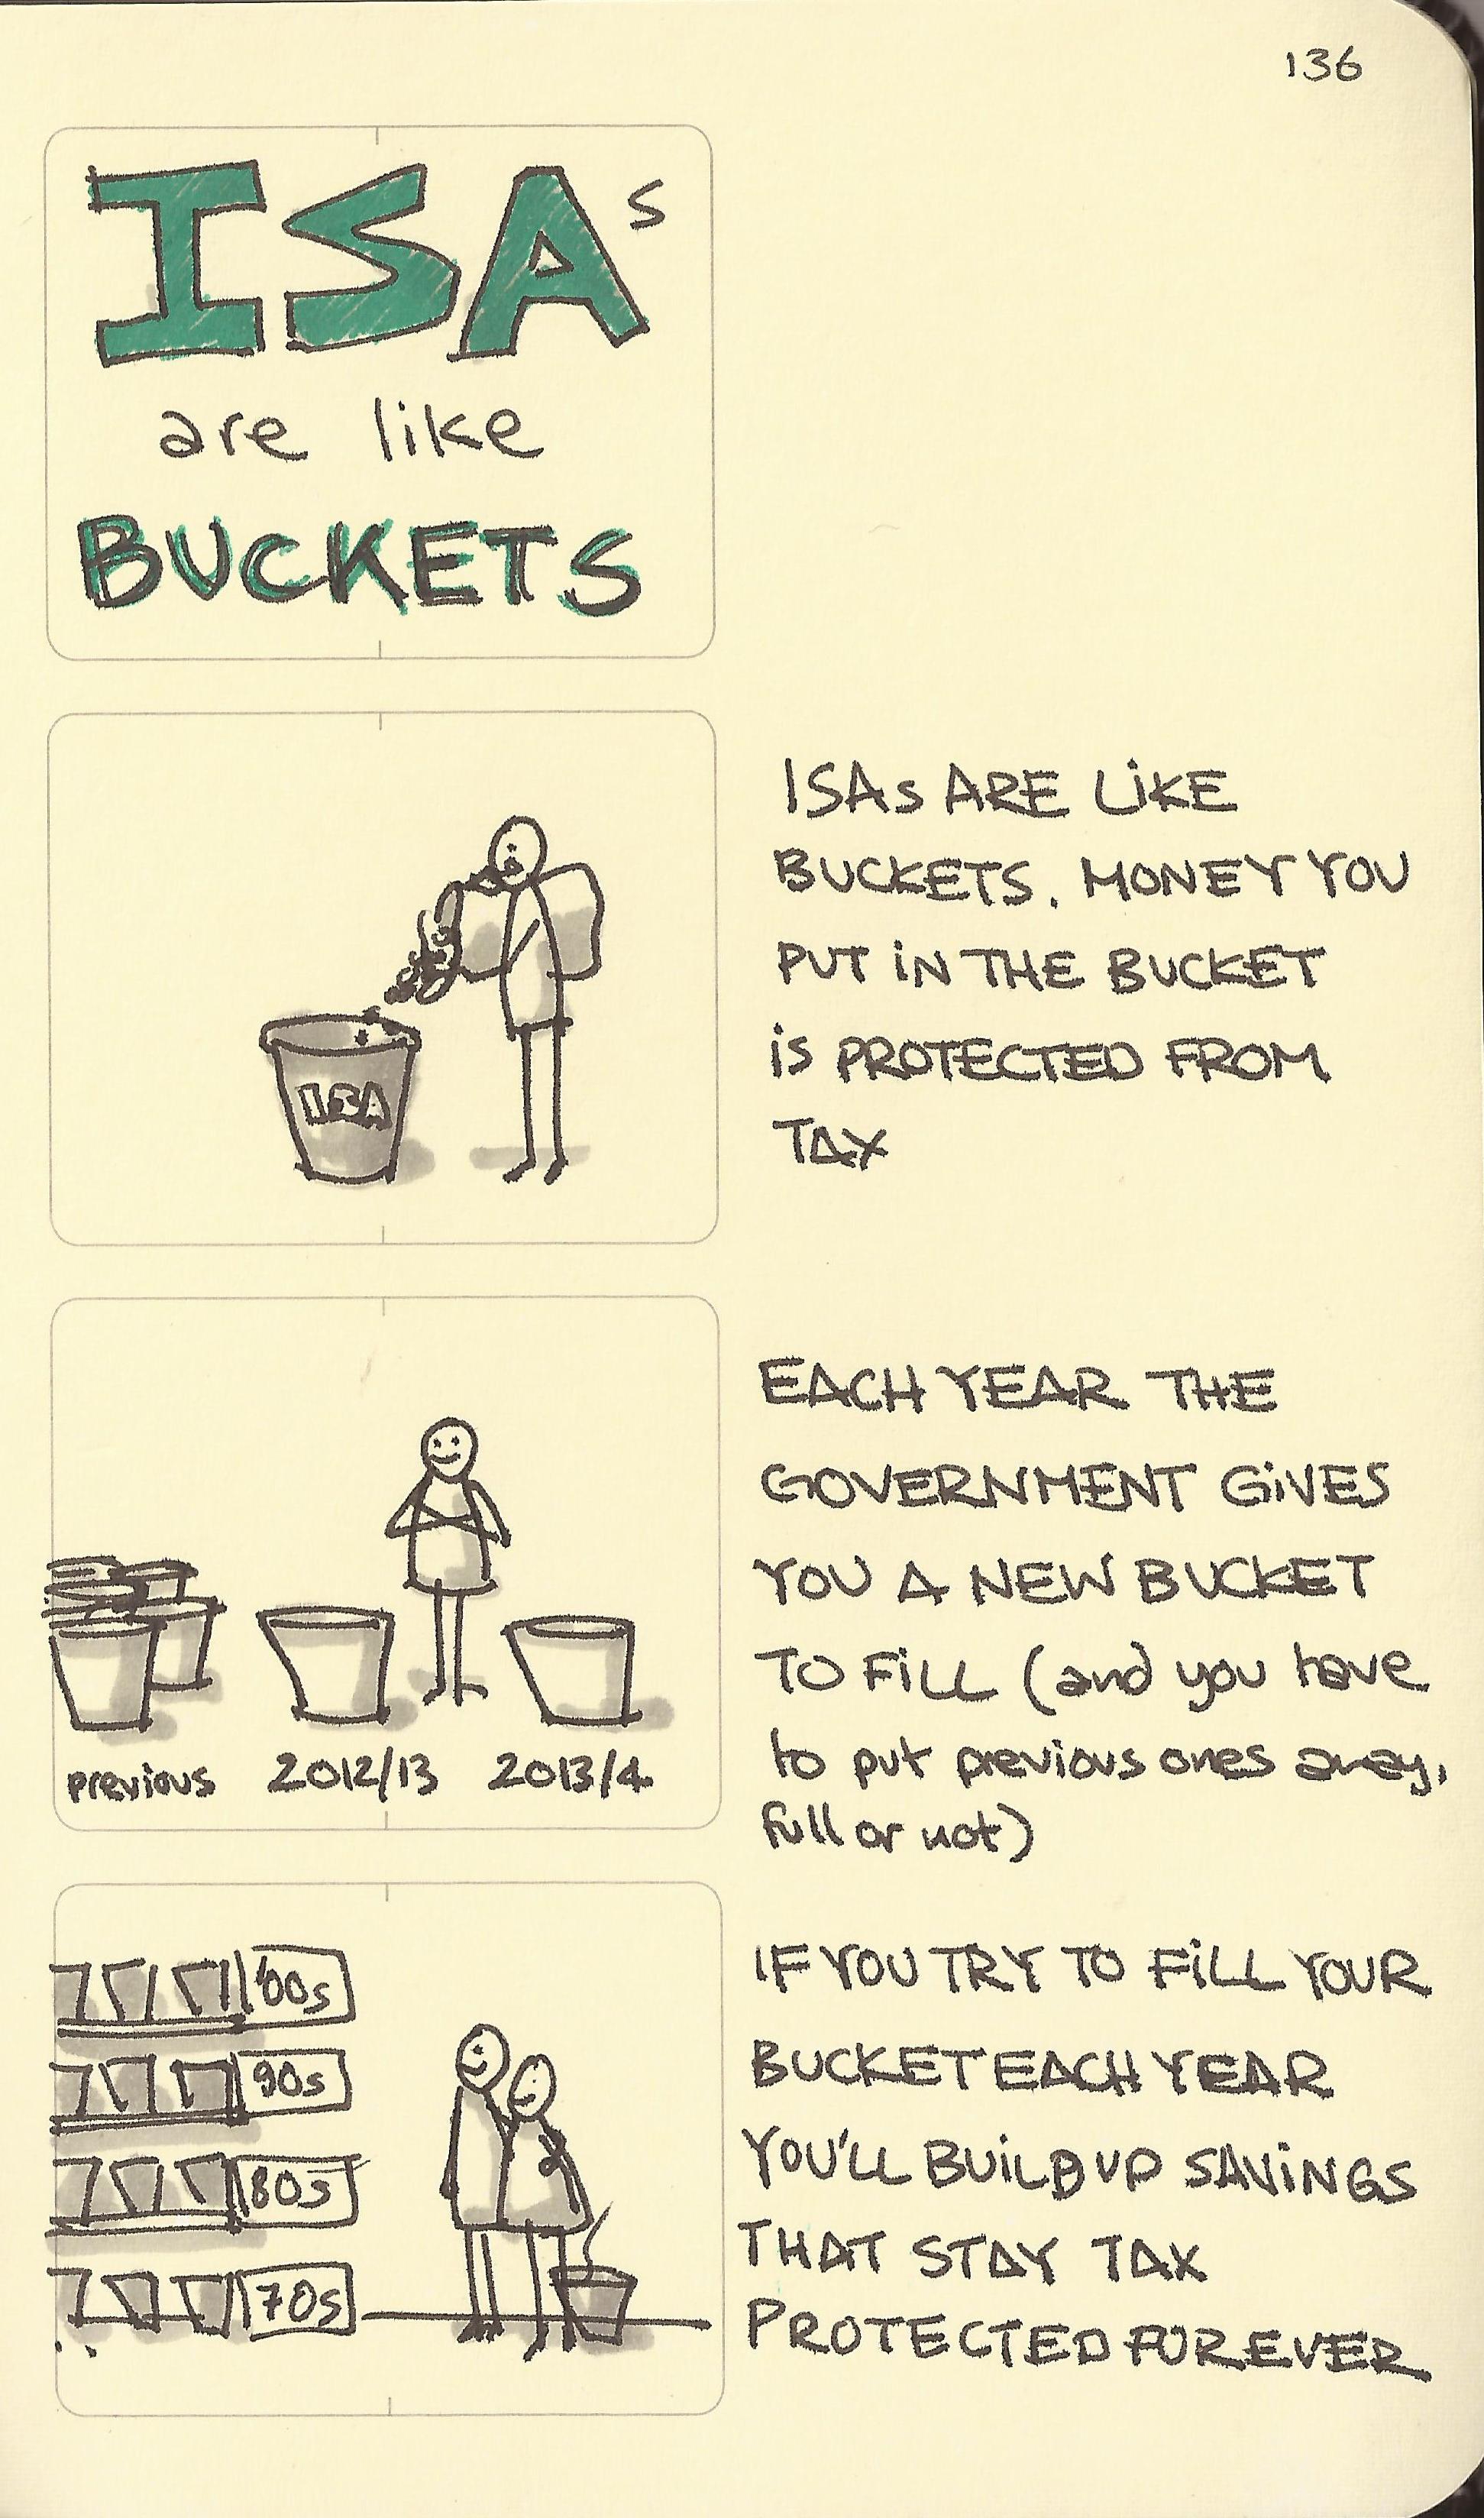 136
ISAs
are like
BUCKETS
ISA
ISAs ARE LIKE
BUCKETS. MONEY YOU
PUT IN THE BUCKET
IS PROTECTED FROM
TAX
previous 2012/13 2013/4
EACH YEAR THE
GOVERNMENT GIVES
YOU A NEW BUCKET
TO FILL (and you have
to put previous ones away,
full or not)
'00s
90s
80s
70s
IF YOU TRY TO FILL YOUR
BUCKET EACH YEAR
YOU'LL BUILD UP SAVINGS
THAT STAY TAX
PROTECTED FOREVER